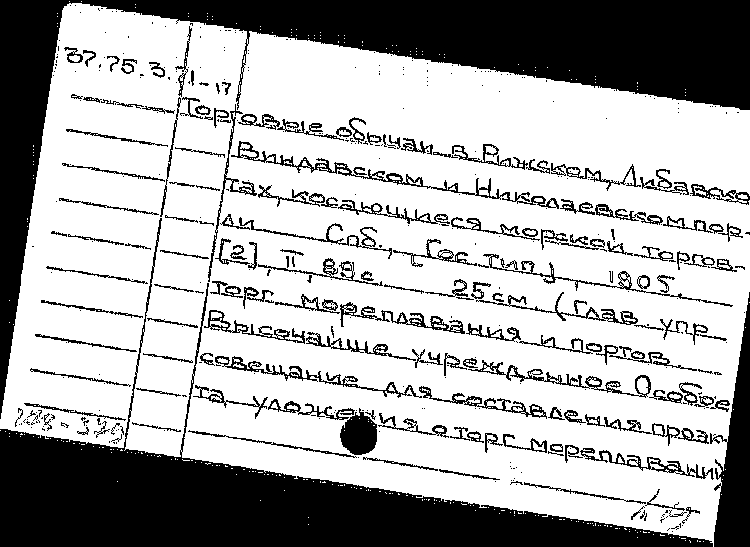 37.75.3.71-17
Торговые обычаи в Рижском, Либавско
Виндавском и Николаевском пор-
тах, касающиеся морской торгов-
ли Спб., [Гос. тип.], 1905.
[2], II, 89 с. 25 см. (Глав. упр
торг. мореплавания и портов.
Высочайше учрежденное Особое
совещание для составления проэк-
та уложения о торг. мореплавании)